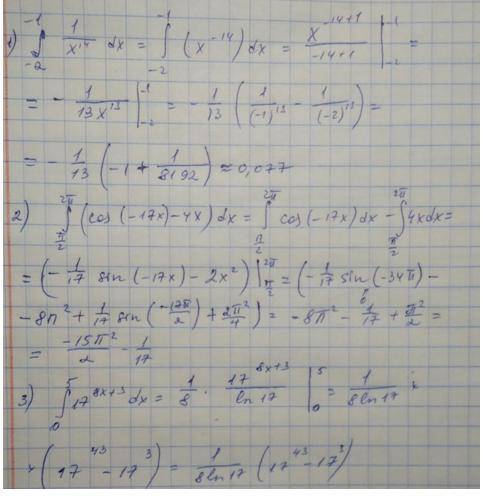 1) ∫_{-2}^{-1} 1/x^{14} dx = ∫_{-2}^{-1} (x^{-14}) dx = x^{-14+1}/(-14+1) |_{-2}^{-1} =
= - 1/(13x^{13}) |_{-2}^{-1} = - 1/13 (1/(-1)^{13} - 1/(-2)^{13}) =
= - 1/13 (-1 + 1/8192) ≈ 0,077
2) ∫_{π/2}^{2π} (cos(-17x) - 4x) dx = ∫_{π/2}^{2π} cos(-17x) dx - ∫_{π/2}^{2π} 4x dx =
= (- 1/17 sin(-17x) - 2x²) |_{π/2}^{2π} = (- 1/17 sin(-34π) -
- 8π² + 1/17 sin(-17π/2) + 2π²/4) = -8π² - 1/17 + π²/2 =
= -15π²/2 - 1/17
3) ∫_{0}^{5} 17^{8x+3} dx = 1/8 · 17^{8x+3}/ln 17 |_{0}^{5} = 1/(8 ln 17) ×
× (17^{43} - 17^{3}) = 1/(8 ln 17) (17^{43} - 17^{3})